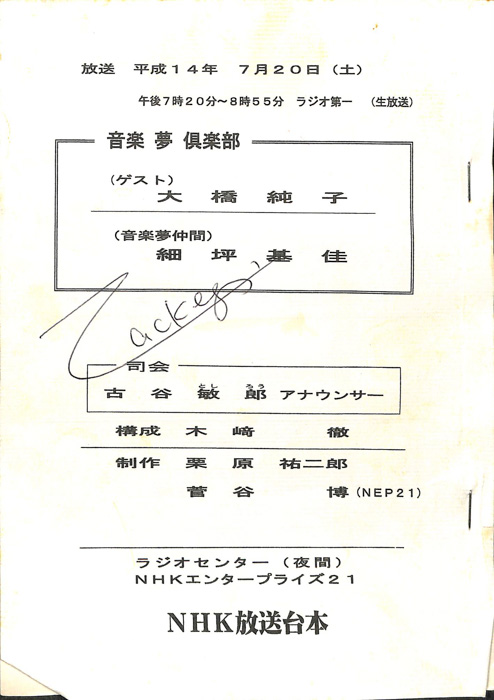 放送 平成14年 7月20日（土）
午後7時20分～8時55分 ラジオ第一 （生放送）
音楽 夢 倶楽部
（ゲスト）
大橋純子
（音楽夢仲間）
細坪基佳
司会
古谷敏郎 アナウンサー
とし ろう
構成 木﨑 徹
制作 栗原 祐二郎
菅谷 博（NEP21）
ラジオセンター（夜間）
NHKエンタープライズ21
NHK放送台本